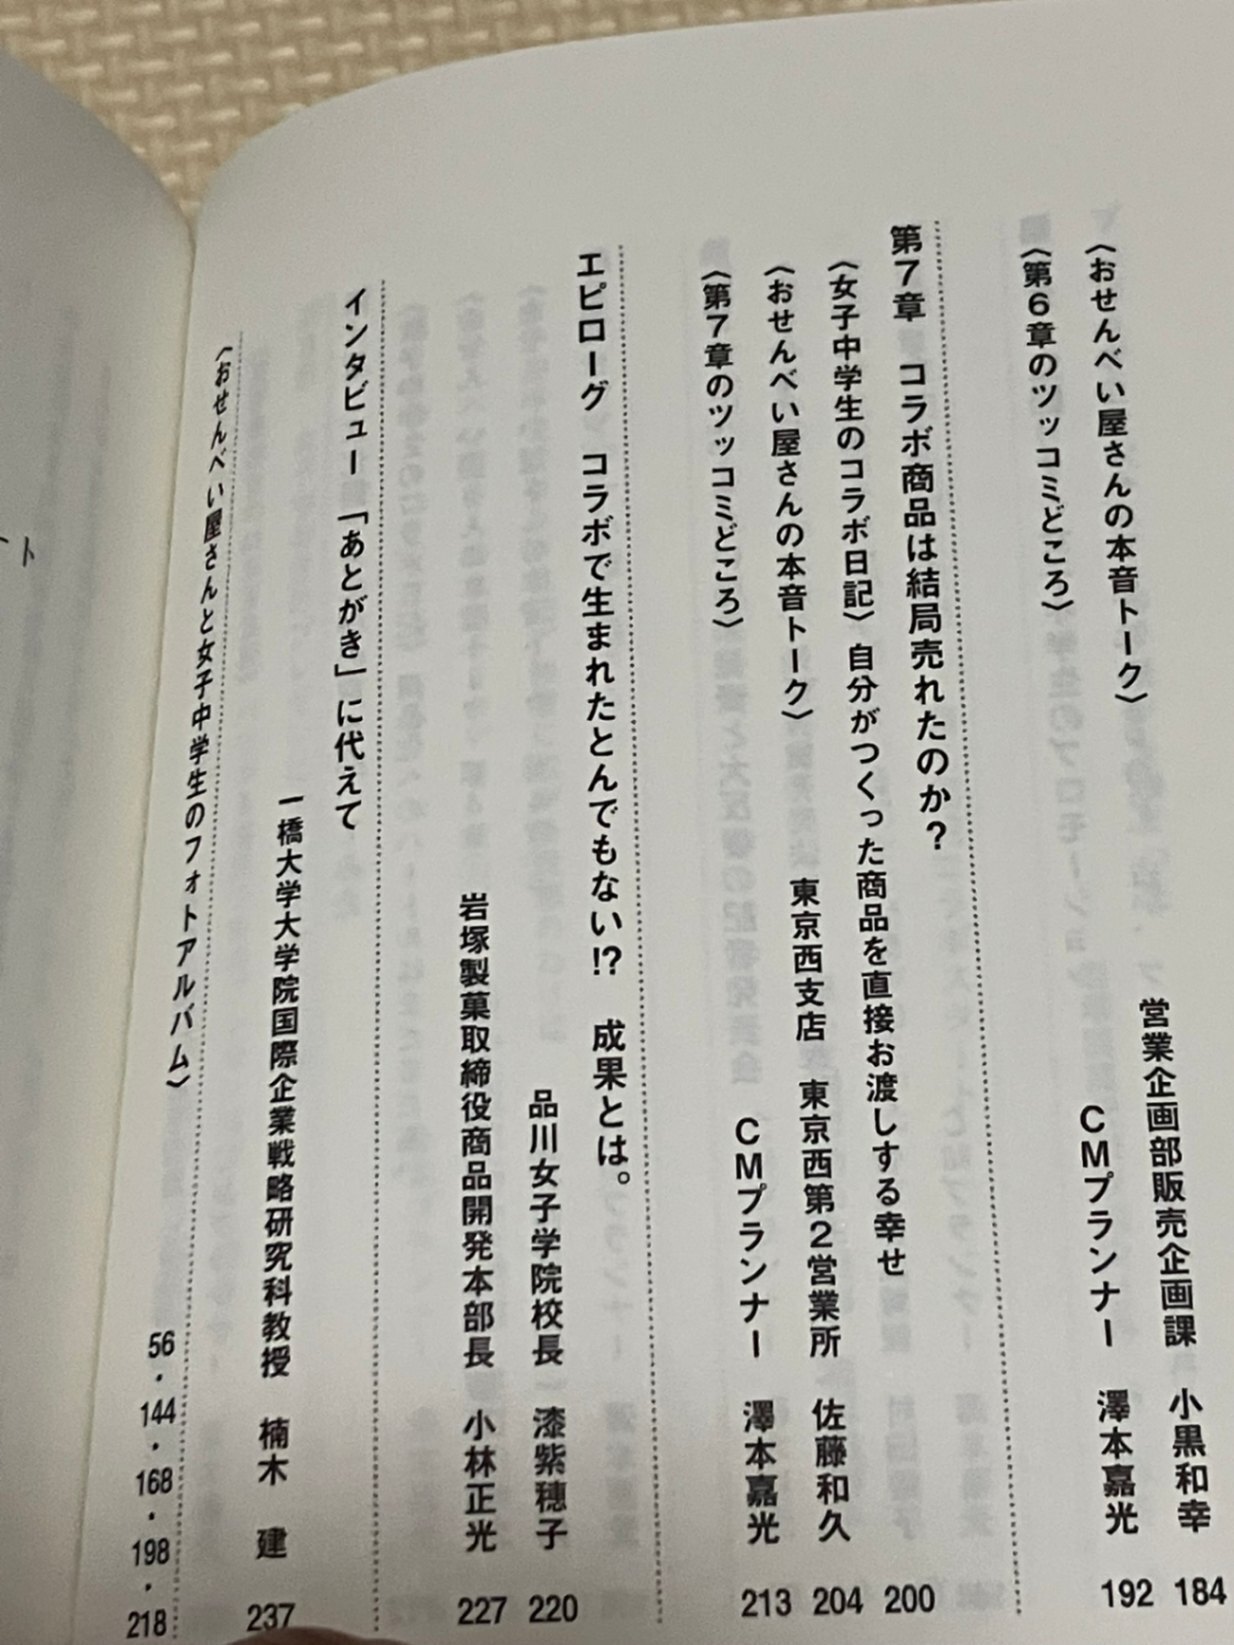 〈おせんべい屋さんの本音トーク〉 営業企画部販売企画課 小黒和幸 184
〈第6章のツッコミどころ〉 CMプランナー 澤本嘉光 192
第7章 コラボ商品は結局売れたのか？ 200
〈女子中学生のコラボ日記〉自分がつくった商品を直接お渡しする幸せ
〈おせんべい屋さんの本音トーク〉 東京西支店 東京西第2営業所 佐藤和久 204
〈第7章のツッコミどころ〉 CMプランナー 澤本嘉光 213
エピローグ コラボで生まれたとんでもない!? 成果とは。
品川女子学院校長 漆紫穂子 220
岩塚製菓取締役商品開発本部長 小林正光 227
インタビュー「あとがき」に代えて
一橋大学大学院国際企業戦略研究科教授 楠木 建 237
〈おせんべい屋さんと女子中学生のフォトアルバム〉 56・144・168・198・218